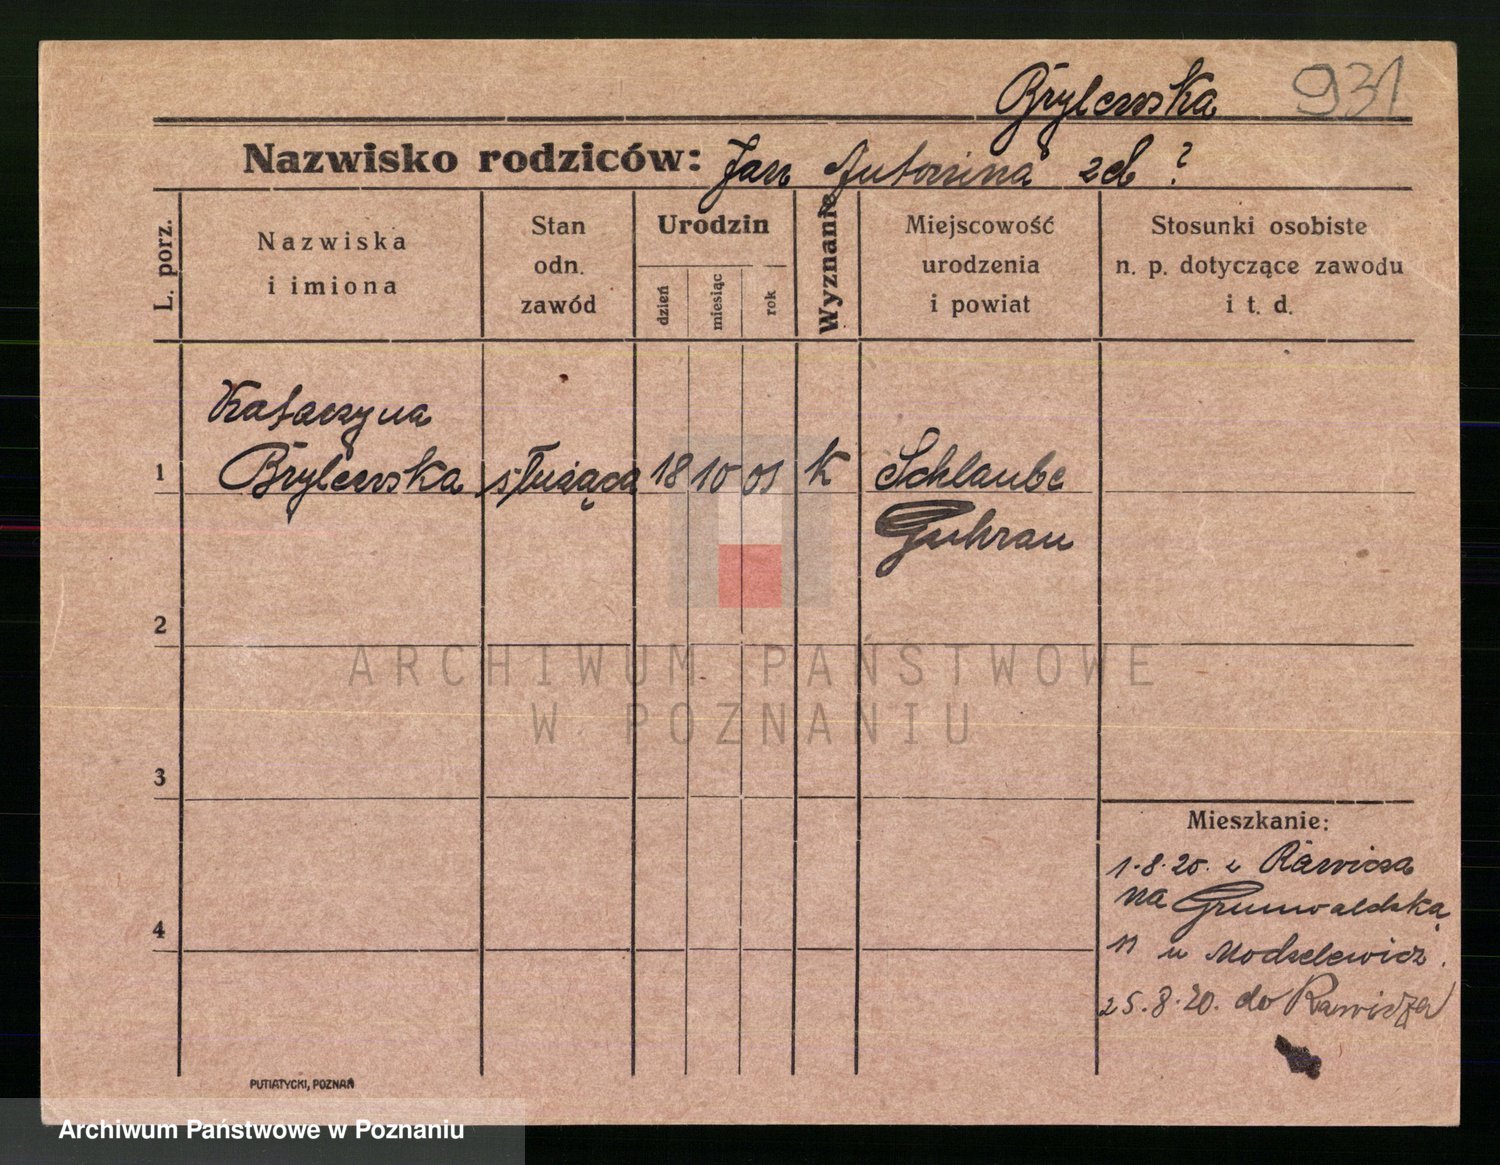 Brylewska 931
Nazwisko rodziców: Jan Antonina zd ?
L. porz.
Nazwiska
i imiona
Stan
odn.
zawód
Urodzin
dzień
miesiąc
rok
Wyznanie
Miejscowość
urodzenia
i powiat
Stosunki osobiste
n. p. dotyczące zawodu
i t. d.
Katarzyna
1 Brylewska służąca 18 10 01 K Schlaube
Guhrau
2
3
4
Mieszkanie:
1.8.20. z Rawicza
na Grunwaldską
11 u Modzelewicz.
25.8.20. do Rawicza
PUTIATYCKI, POZNAŃ
ARCHIWUM PAŃSTWOWE
W POZNANIU
Archiwum Państwowe w Poznaniu